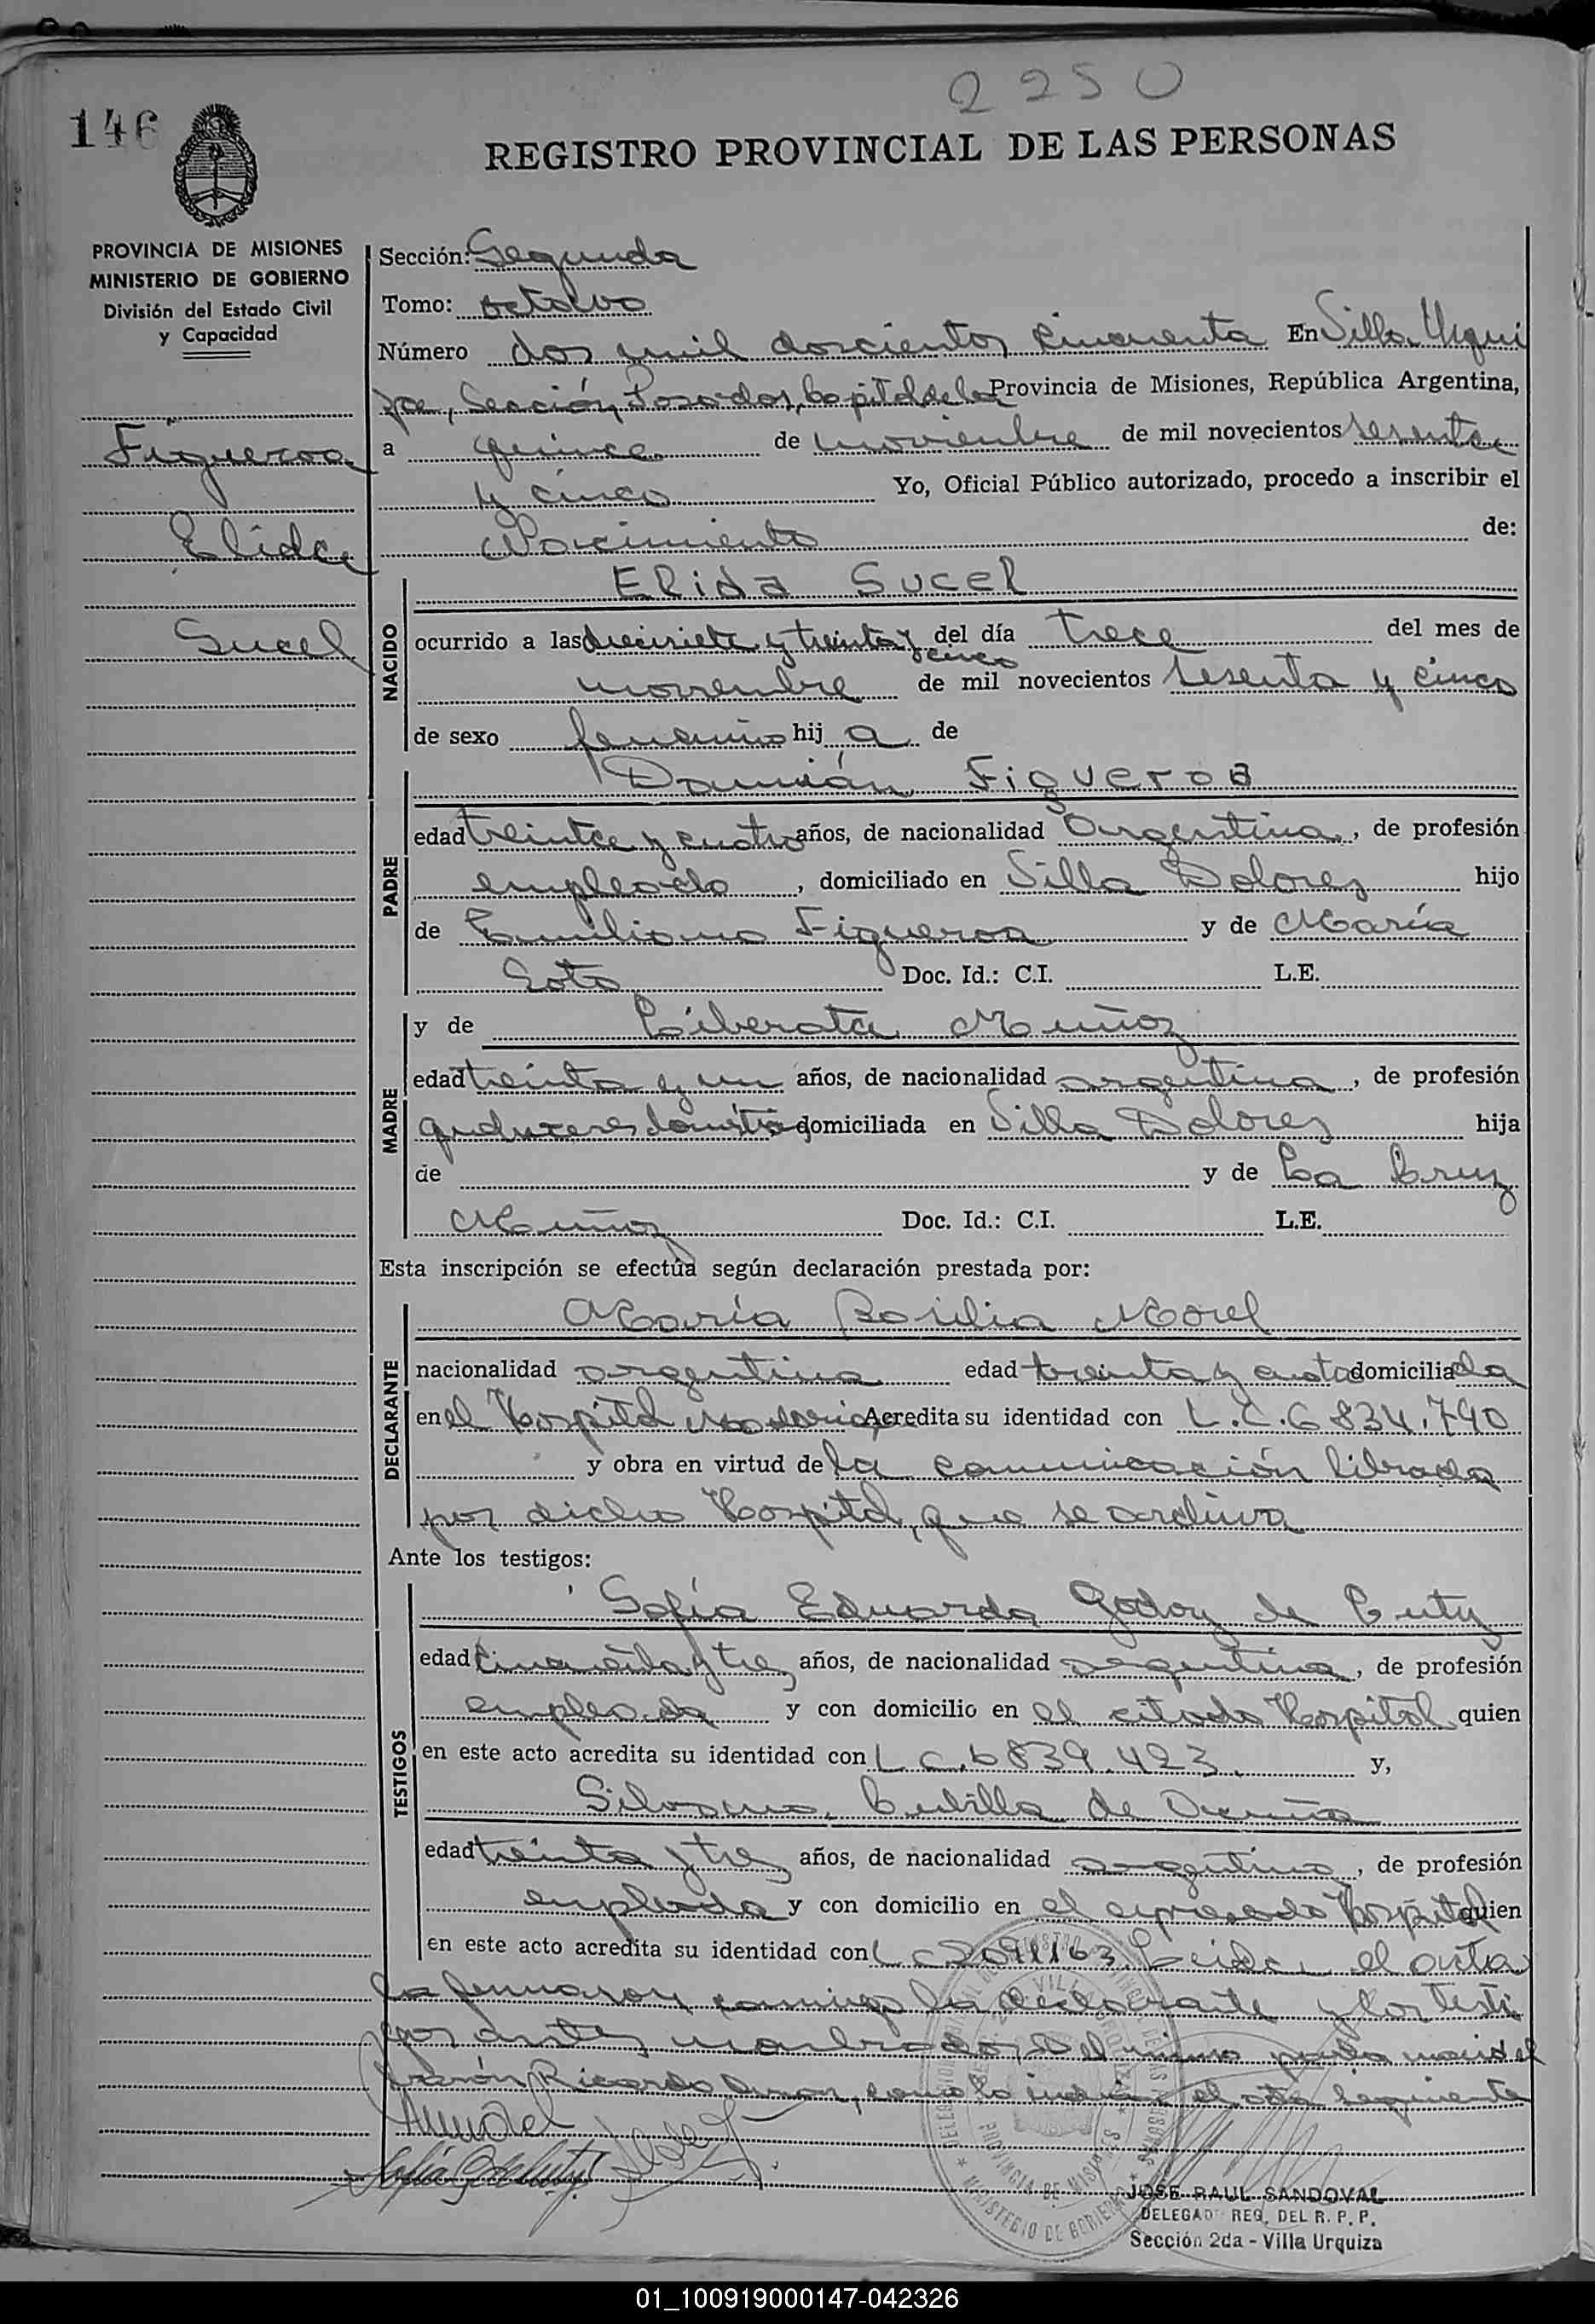 2250
146
REGISTRO PROVINCIAL DE LAS PERSONAS
PROVINCIA DE MISIONES
MINISTERIO DE GOBIERNO
División del Estado Civil
y Capacidad
Figueroa
Elida
Sucel
Sección: Segunda
Tomo: octavo
Número dos mil doscientos cincuenta En Villa Urqui
za, Sección Posadas, Capital de la Provincia de Misiones, República Argentina,
a quince de noviembre de mil novecientos sesenta
y cinco Yo, Oficial Público autorizado, procedo a inscribir el
Nacimiento de:
NACIDO
Elida Sucel
ocurrido a las diecisiete y treinta y cinco del día trece del mes de
noviembre de mil novecientos sesenta y cinco
de sexo femenino hij a de
PADRE
Damián Figueroa
edad treinta y cuatro años, de nacionalidad Argentina, de profesión
empleado, domiciliado en Villa Dolores hijo
de Emiliano Figueroa y de María
Soto Doc. Id.: C.I. L.E.
MADRE
y de Liberata Muñoz
edad treinta y un años, de nacionalidad argentina, de profesión
quehaceres domésticos domiciliada en Villa Dolores hija
de y de La Cruz
Muñoz Doc. Id.: C.I. L.E.
Esta inscripción se efectúa según declaración prestada por:
DECLARANTE
María Basilia Morel
nacionalidad argentina edad treinta y cuatro domiciliada
en el Hospital Madariaga Acredita su identidad con L.C. 6834.790
y obra en virtud de la comunicación librada
por dicho Hospital, que se archiva
Ante los testigos:
TESTIGOS
Sofía Eduarda Godoy de
edad cincuenta y tres años, de nacionalidad argentina, de profesión
empleada y con domicilio en el citado Hospital quien
en este acto acredita su identidad con L.C. 6839.423. y,
Silvana de
edad treinta y tres años, de nacionalidad argentina, de profesión
empleada y con domicilio en el expresado Hospital quien
en este acto acredita su identidad con L.C. Leida el acta
la firmaron conmigo la declarante y los testi
gos antes nombrados. Del mismo parto nació el
varón Ricardo como lo indica el acta siguiente
JOSE RAUL SANDOVAL
DELEGADO REG. DEL R. P. P.
Sección 2da - Villa Urquiza
01_100919000147-042326